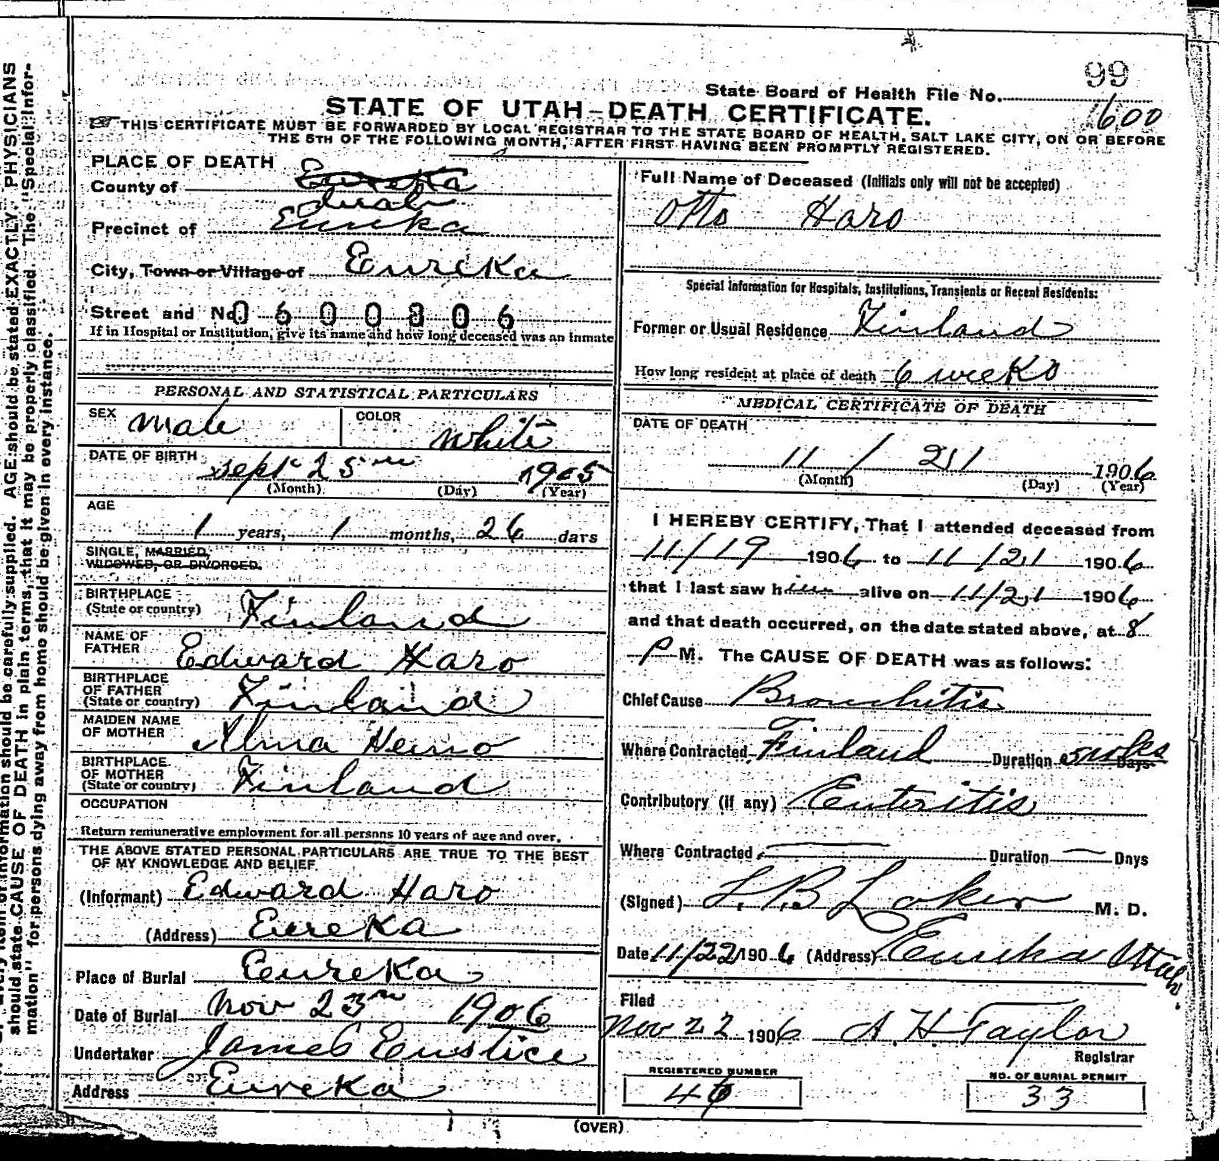 99
State Board of Health File No. 1600
STATE OF UTAH–DEATH CERTIFICATE.
THIS CERTIFICATE MUST BE FORWARDED BY LOCAL REGISTRAR TO THE STATE BOARD OF HEALTH, SALT LAKE CITY, ON OR BEFORE
THE 5TH OF THE FOLLOWING MONTH, AFTER FIRST HAVING BEEN PROMPTLY REGISTERED.
PLACE OF DEATH
County of Eureka
Juab
Precinct of Eureka
City, Town or Village of Eureka
Street and No. 0600806
If in Hospital or Institution, give its name and how long deceased was an inmate
PERSONAL AND STATISTICAL PARTICULARS
SEX male COLOR white
DATE OF BIRTH Sept 25 1905
(Month) (Day) (Year)
AGE
1 years, 1 months, 26 days
SINGLE, MARRIED,
WIDOWED, OR DIVORCED.
BIRTHPLACE
(State or country) Finland
NAME OF
FATHER Edward Haro
BIRTHPLACE
OF FATHER
(State or country) Finland
MAIDEN NAME
OF MOTHER Alma Heino
BIRTHPLACE
OF MOTHER
(State or country) Finland
OCCUPATION
Return remunerative employment for all persons 10 years of age and over.
THE ABOVE STATED PERSONAL PARTICULARS ARE TRUE TO THE BEST
OF MY KNOWLEDGE AND BELIEF
(Informant) Edward Haro
(Address) Eureka
Place of Burial Eureka
Date of Burial Nov 23rd 1906
Undertaker James Eustice
Address Eureka
Full Name of Deceased (Initials only will not be accepted)
Otto Haro
Special Information for Hospitals, Institutions, Transients or Recent Residents:
Former or Usual Residence Finland
How long resident at place of death 6 weeks
MEDICAL CERTIFICATE OF DEATH
DATE OF DEATH
11 / 21 1906
(Month) (Day) (Year)
I HEREBY CERTIFY, That I attended deceased from
11/19 1906 to 11/21 1906
that I last saw him alive on 11/21 1906
and that death occurred, on the date stated above, at 8
P M. The CAUSE OF DEATH was as follows:
Chief Cause Bronchitis
Where Contracted Finland Duration 5 wks Days
Contributory (if any) Enteritis
Where Contracted — Duration — Days
(Signed) M. D.
Date 11/22 1906 (Address) Eureka Utah.
Filed
Nov 22 1906 A. H. Taylor
Registrar
REGISTERED NUMBER
46
NO. OF BURIAL PERMIT
33
(OVER)
every item of information should be carefully supplied. AGE should be stated EXACTLY. PHYSICIANS
should state CAUSE OF DEATH in plain terms, that it may be properly classified. The "Special Infor-
mation" for persons dying away from home should be given in every instance.